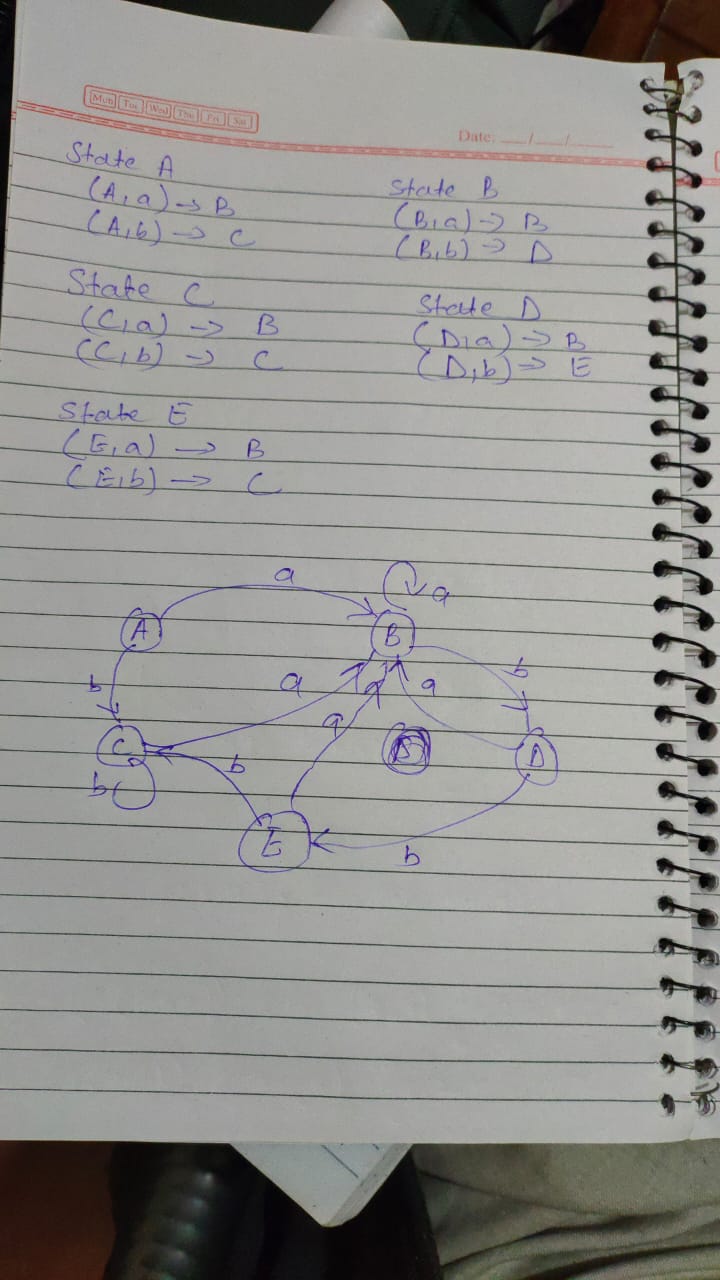 Mon Tue Wed Thu Fri Sat
Date: __/__/__
State A
(A,a) → B
(A,b) → C
State B
(B,a) → B
(B,b) → D
State C
(C,a) → B
(C,b) → C
State D
(D,a) → B
(D,b) → E
State E
(E,a) → B
(E,b) → C
a
a
A
B
b
b
a
a
a
C
D
b
b
E
b